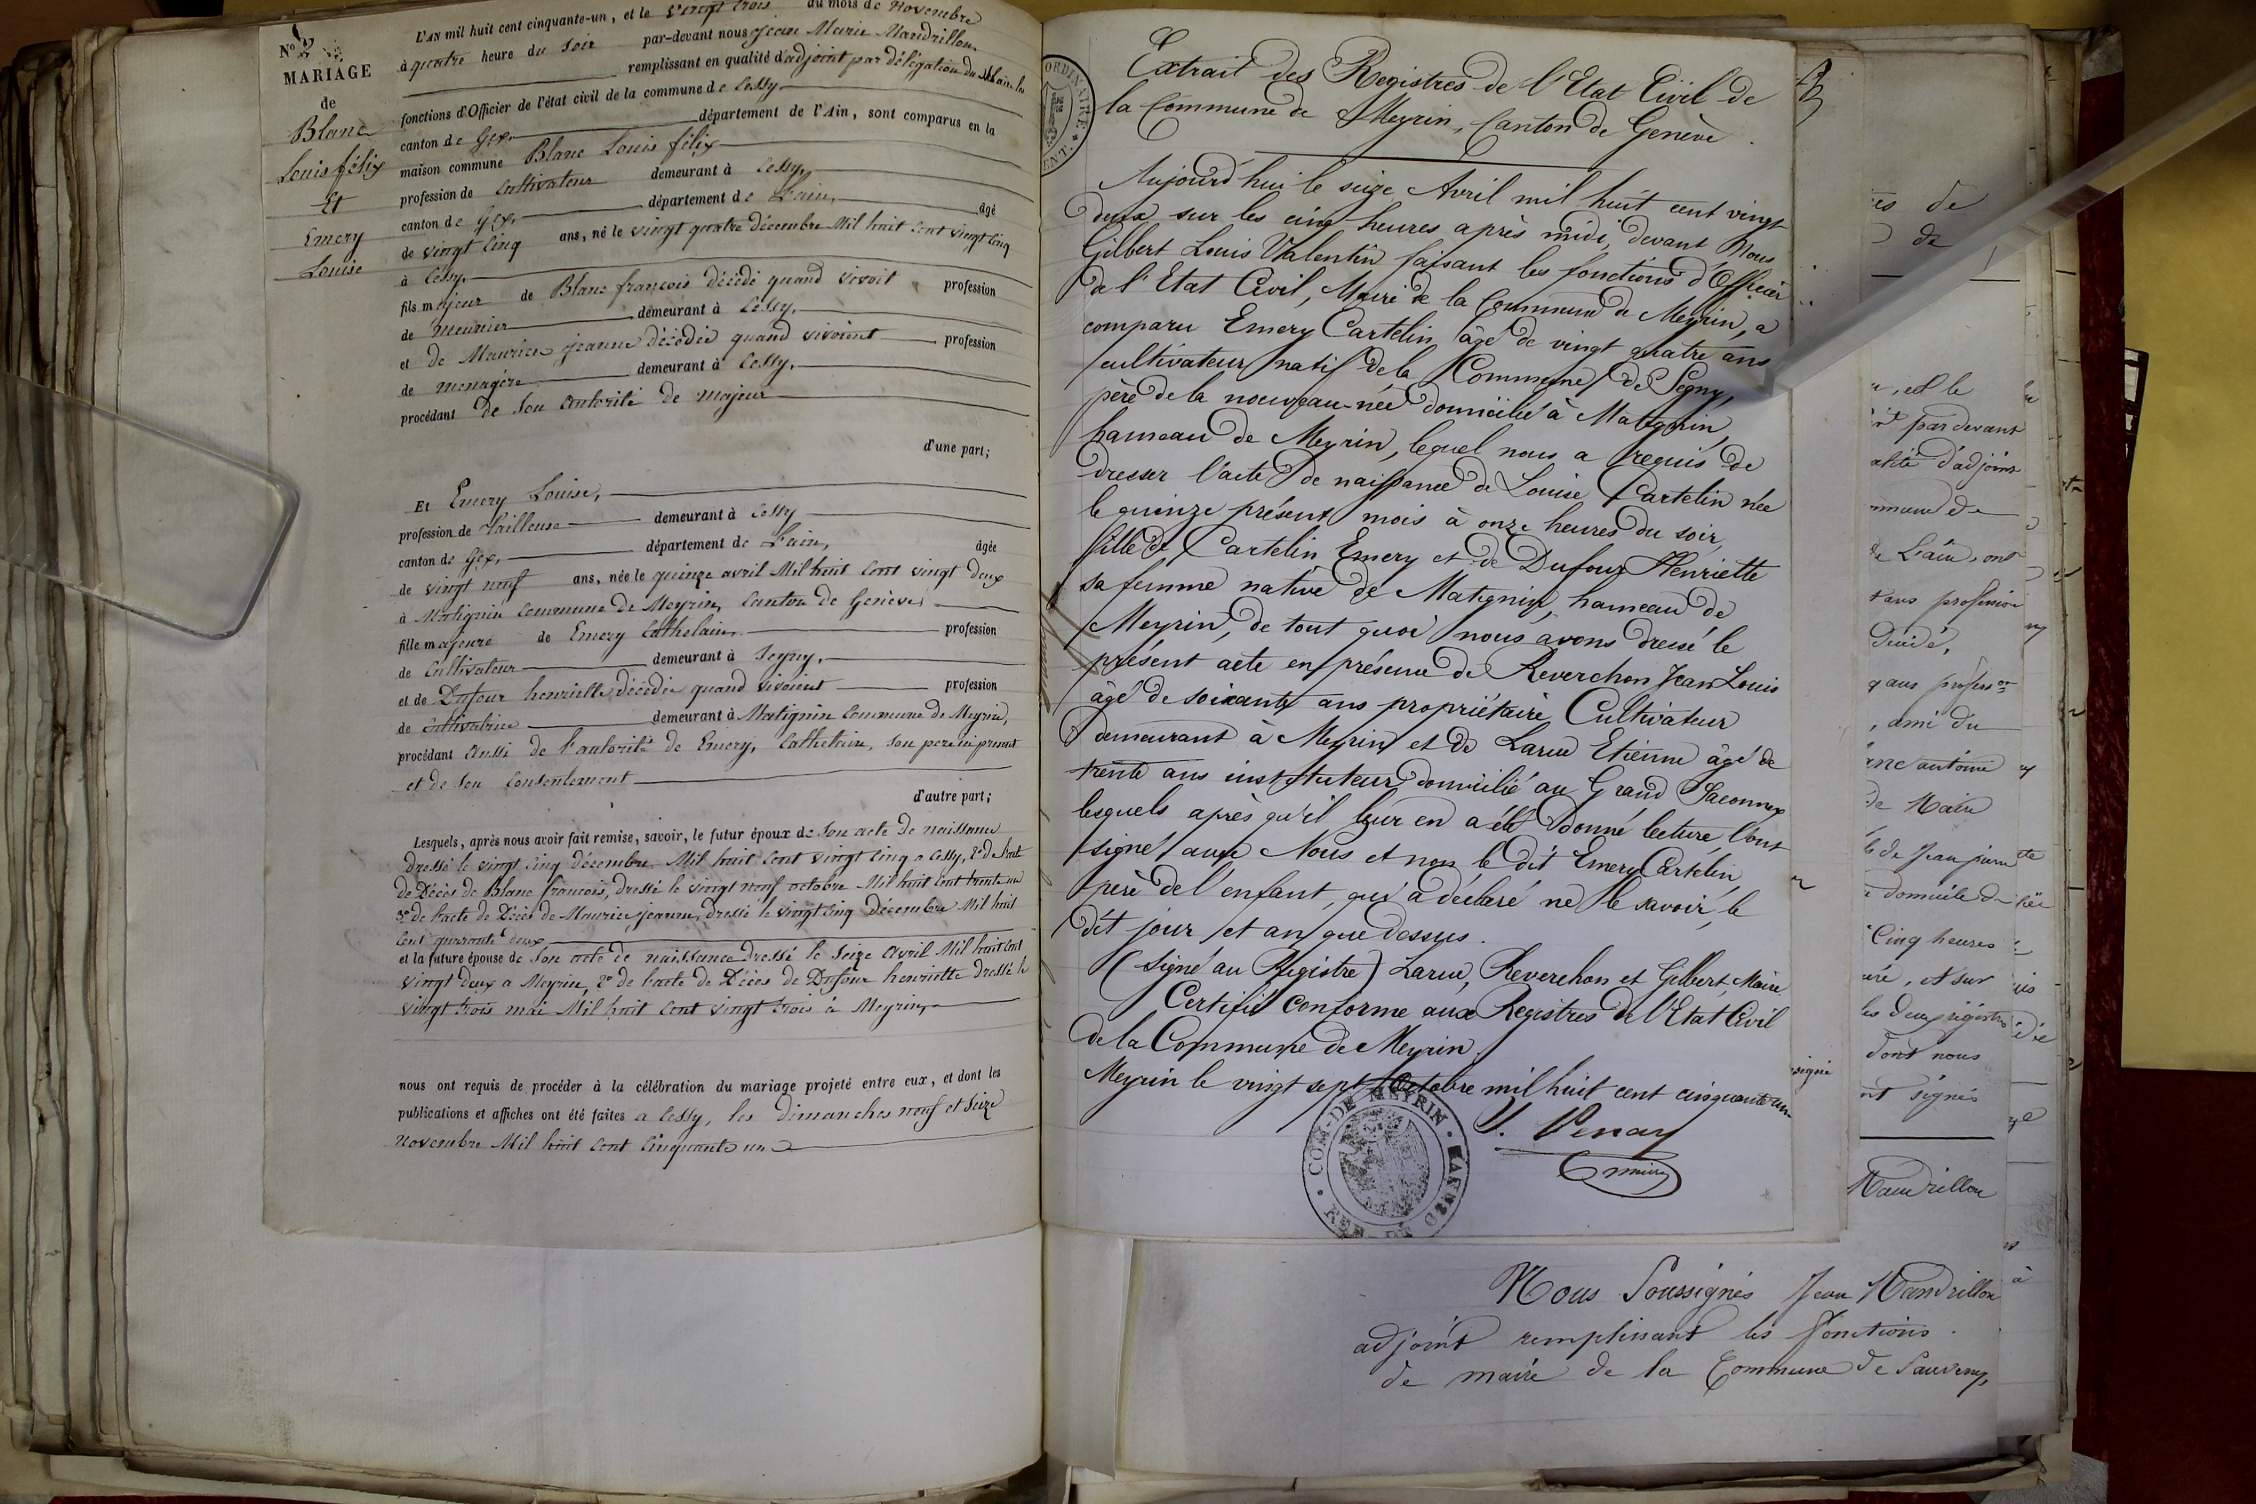 N° 2
MARIAGE
de
Blanc
Louis félix
Et
Emery
Louise
L'AN mil huit cent cinquante-un, et le vingt trois du mois de Novembre
à quatre heure du soir par-devant nous Jean Marie Mandrillon
remplissant en qualité d'adjoint par délégation du Maire les
fonctions d'Officier de l'état civil de la commune de Cessy
canton de Gex, département de l'Ain, sont comparus en la
maison commune Blanc Louis félix
profession de Cultivateur demeurant à Cessy,
canton de Gex, département de l'ain, âgé
de vingt Cinq ans, né le vingt quatre décembre Mil huit Cent vingt Cinq
à Cessy,
fils majeur de Blanc françois décédé quand vivoit profession
de meunier demeurant à Cessy,
et de Maurier jeanne décédée quand vivoient profession
de menagère demeurant à Cessy,
procédant de son autorité de majeur
d'une part;
Et Emery Louise,
profession de tailleuse demeurant à Cessy
canton de Gex, département de l'ain, âgée
de vingt neuf ans, née le quinze avril Mil huit Cent vingt deux
à Matignin Commune de Meyrin, Canton de Genève
fille majeure de Emery Cathelain, profession
de Cultivateur demeurant à Segny,
et de Dufour henriette, décédée quand vivoient profession
de Cultivatrice demeurant à Matignin Commune de Meyrin,
procédant aussi de l'autorité de Emery, Cathelain, son pere ici présent
et de son Consentement
d'autre part;
Lesquels, après nous avoir fait remise, savoir, le futur époux de son acte de naissance
dressé le vingt Cinq décembre Mil huit Cent vingt Cinq a Cessy, 2° de l'acte
de Décès de Blanc francois, dressé le vingt neuf octobre Mil huit Cent trente un
3° de l'acte de Décès de Maurier jeanne, dressé le vingt Cinq Décembre Mil huit
Cent quarante deux
et la future épouse de son acte de naissance dressé le Seize avril Mil huit Cent
vingt deux a Meyrin, 2° de l'acte de Décès de Dufour henriette dressé le
vingt trois mai Mil huit Cent vingt trois à Meyrin,
nous ont requis de procéder à la célébration du mariage projeté entre eux, et dont les
publications et affiches ont été faites a Cessy, les dimanches neuf et seize
novembre Mil huit Cent Cinquante un
Extrait des Registres de l'Etat Civil de
la Commune de Meyrin, Canton de Genève.
Aujourd'hui le seize Avril mil huit cent vingt
deux sur les cinq heures après midi, devant Nous
Gilbert Louis Valentin faisant les fonctions d'Officier
de l'Etat Civil, Maire de la Commune de Meyrin, a
comparu Emery Cartelin, âgé de vingt quatre ans
cultivateur natif de la Commune de Segny,
père de la nouveau-née domicilié à Matignin,
hameau de Meyrin, lequel nous a requis de
dresser l'acte de naissance de Louise Cartelin née
le quinze présent mois à onze heures du soir,
fille de Cartelin Emery et de Dufour Henriette
sa femme native de Matignin, hameau de
Meyrin, de tout quoi nous avons dressé le
présent acte en présence de Reverchon Jean Louis
âgé de soixante ans propriétaire, Cultivateur
demeurant à Meyrin et de Larue Etienne âgé de
trente ans instituteur, domicilié au Grand Saconnex
lesquels après qu'il leur en a été donné lecture, l'ont
signé avec Nous et non le dit Emery Cartelin,
père de l'enfant, qui a déclaré ne le savoir, le
dit jour et an que dessus.
(Signé au Registre) Larue, Reverchon et Gilbert, Maire.
Certifié conforme aux Registres de l'Etat Civil
de la Commune de Meyrin.
Meyrin le vingt sept Octobre mil huit cent cinquante un
COM. DE MEYRIN
maire
ORDINAIRE
res de
de
, et le
par devant
alité d'adjoint
mmune de
de L'ain, ont
ans profession
décidé,
ami du
antoine
de Maire
de Jean
domicile
Cinq heures
, et sur
les deux régistres
dont nous
ont signés
signé
Mandrillon
Nous Soussignés Jean Mandrillon
adjoint remplissant les fonctions
de maire de la Commune de Sauverny,